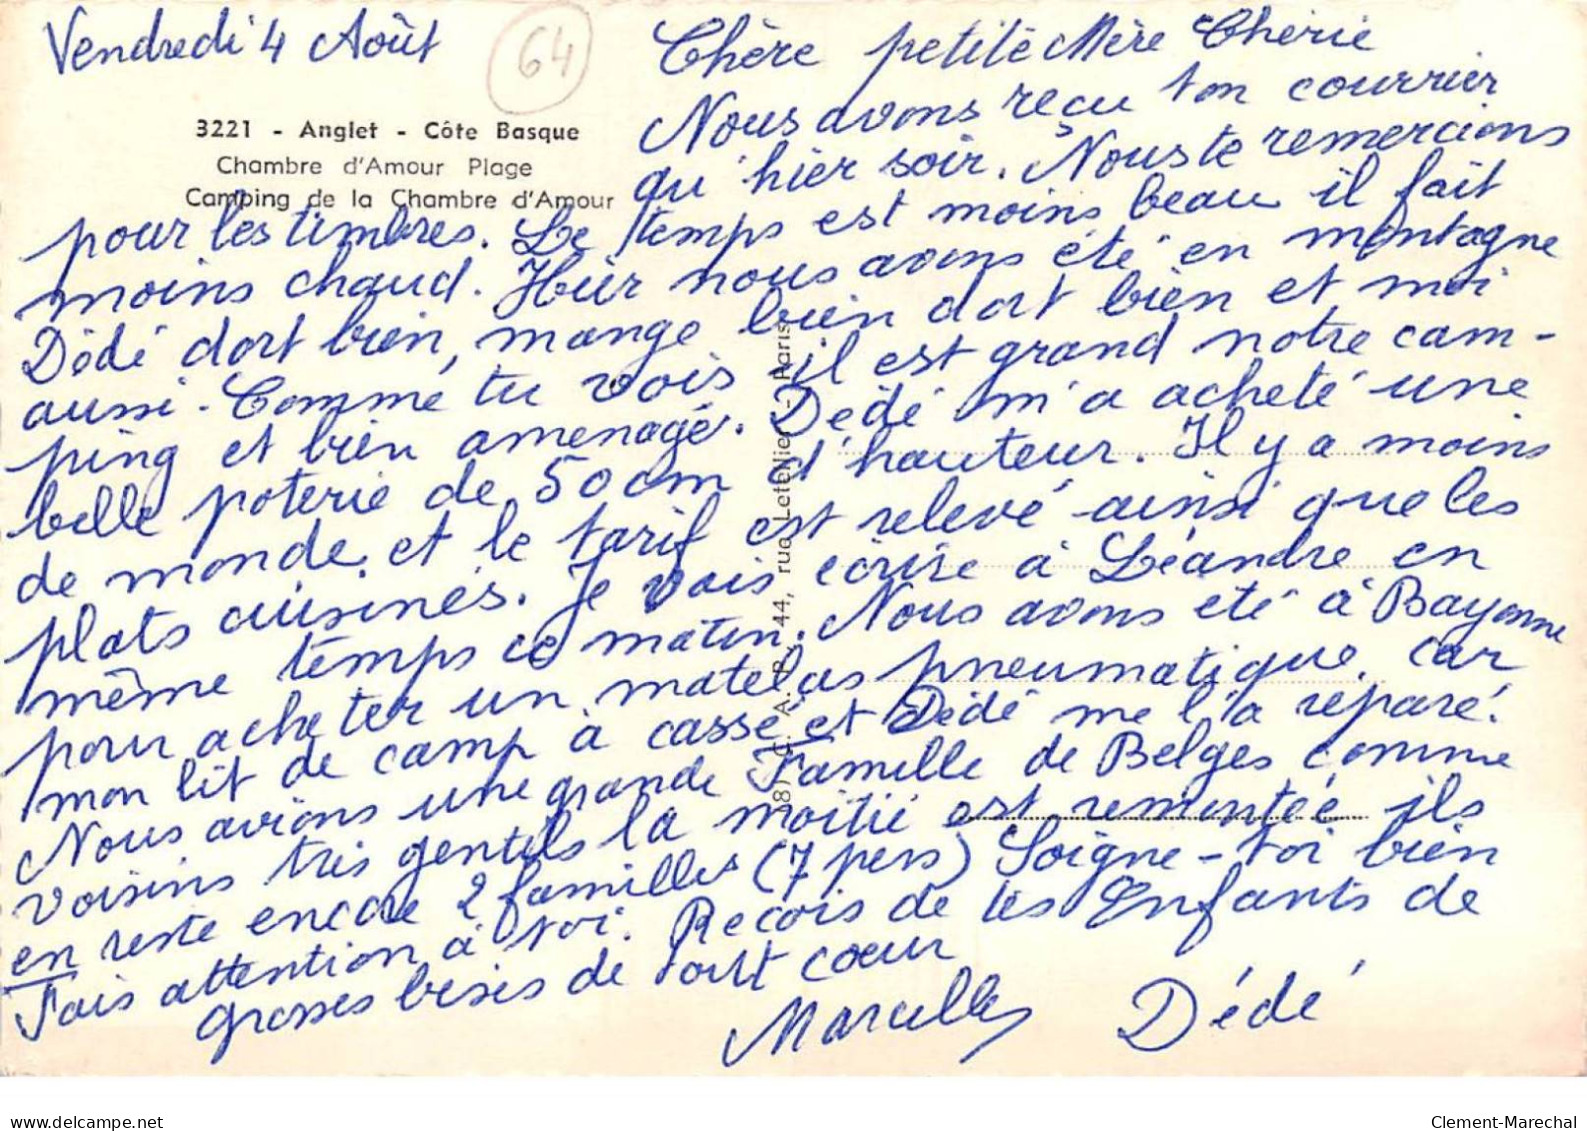 Vendredi 4 Août
64
Chère petite Mère Chérie
3221 - Anglet - Côte Basque
Chambre d'Amour Plage
Camping de la Chambre d'Amour
Nous avons reçu ton courrier
qu'hier soir. Nous te remercions
pour les timbres. Le temps est moins beau il fait
moins chaud. Hier nous avons été en montagne
Dédé dort bien, mange bien dort bien et moi
aussi. Comme tu vois il est grand notre cam-
ping et bien amenagé. Dédé m'a acheté une
belle poterie de 50 cm d'hauteur. Il y a moins
de monde et le tarif est relevé ainsi que les
plats cuisinés. Je vais écrire à Léandre en
même temps ce matin. Nous avons été à Bayonne
pour acheter un matelas pneumatique car
mon lit de camp à cassé et Dédé me l'a réparé.
Nous avions une grande Famille de Belges comme
voisins très gentils la moitié est remontée ils
en reste encore 2 familles (7 pers) Soigne-toi bien
Fais attention à toi. Reçois de tes Enfants de
grosses bises de tout cœur
Marcelle Dédé
44, rue Letellier - Paris
delcampe.net
Clement-Marechal